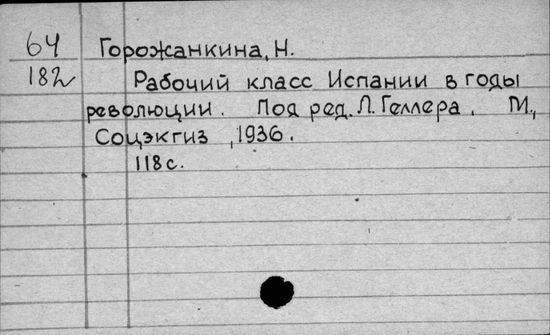 64 Горожанкина, Н.
182 Рабочий класс Испании в годы
революции. Под ред. Л. Геллера. М.,
Соцэкгиз, 1936.
118 с.